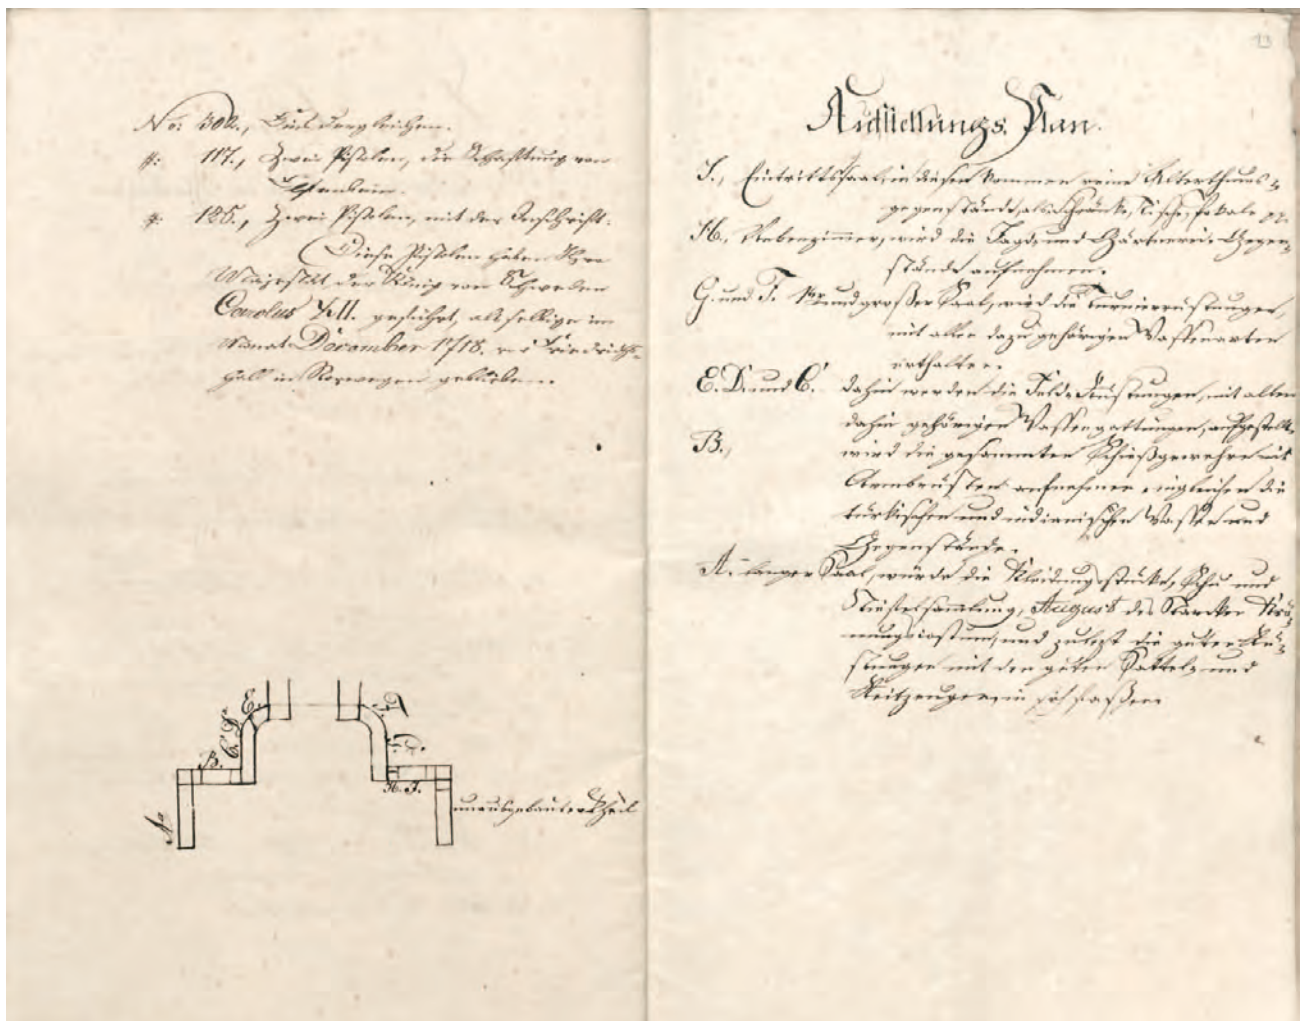 No: 302., Ein dergleichen.
#: 117., Zwei Pistolen, die Schäftung von
#: 125., Zwei Pistolen, mit der Inschrift:
Diese Pistolen haben Ihre
Majestät der König von Schweden
Carolus XII. geführt, als selbige im
Monat December 1718. bei Friedrichs-
hall in Norwegen geblieben.
E.
D.
C.
B.
A.
F.
G.
H. I.
unausgebauter Theil
13
Aufstellungs Plan.
I., Eintrittssaal, in diesen kommen reine Alterthums-
gegenstände, als: Schränke, Tische, Pokale
H., Nebenzimmer, wird die Jagd- und Gärtnerei- Gegen-
stände aufnehmen.
G. und F. Rundgroßer Saal, wird die Turnierrüstungen,
mit allen dazu gehörigen Waffenarten
enthalten.
E. D. und C. dahin werden die Feld-Rüstungen, mit allen
dahin gehörigen Waffengattungen, aufgestellt.
B., wird die gesammten Schießgewehre mit
Armbrüsten aufnehmen, ingleichen die
türkischen und indianischen Waffen und
Gegenstände.
A. langer Saal, würde die Kleidungsstücke, Schu und
Stiefelsammlung, August des Starcken Krö-
nungscostum, und zuletzt die guten Rü-
stungen mit den guten Sattel- und
Reitzeugen, in sich faßen.